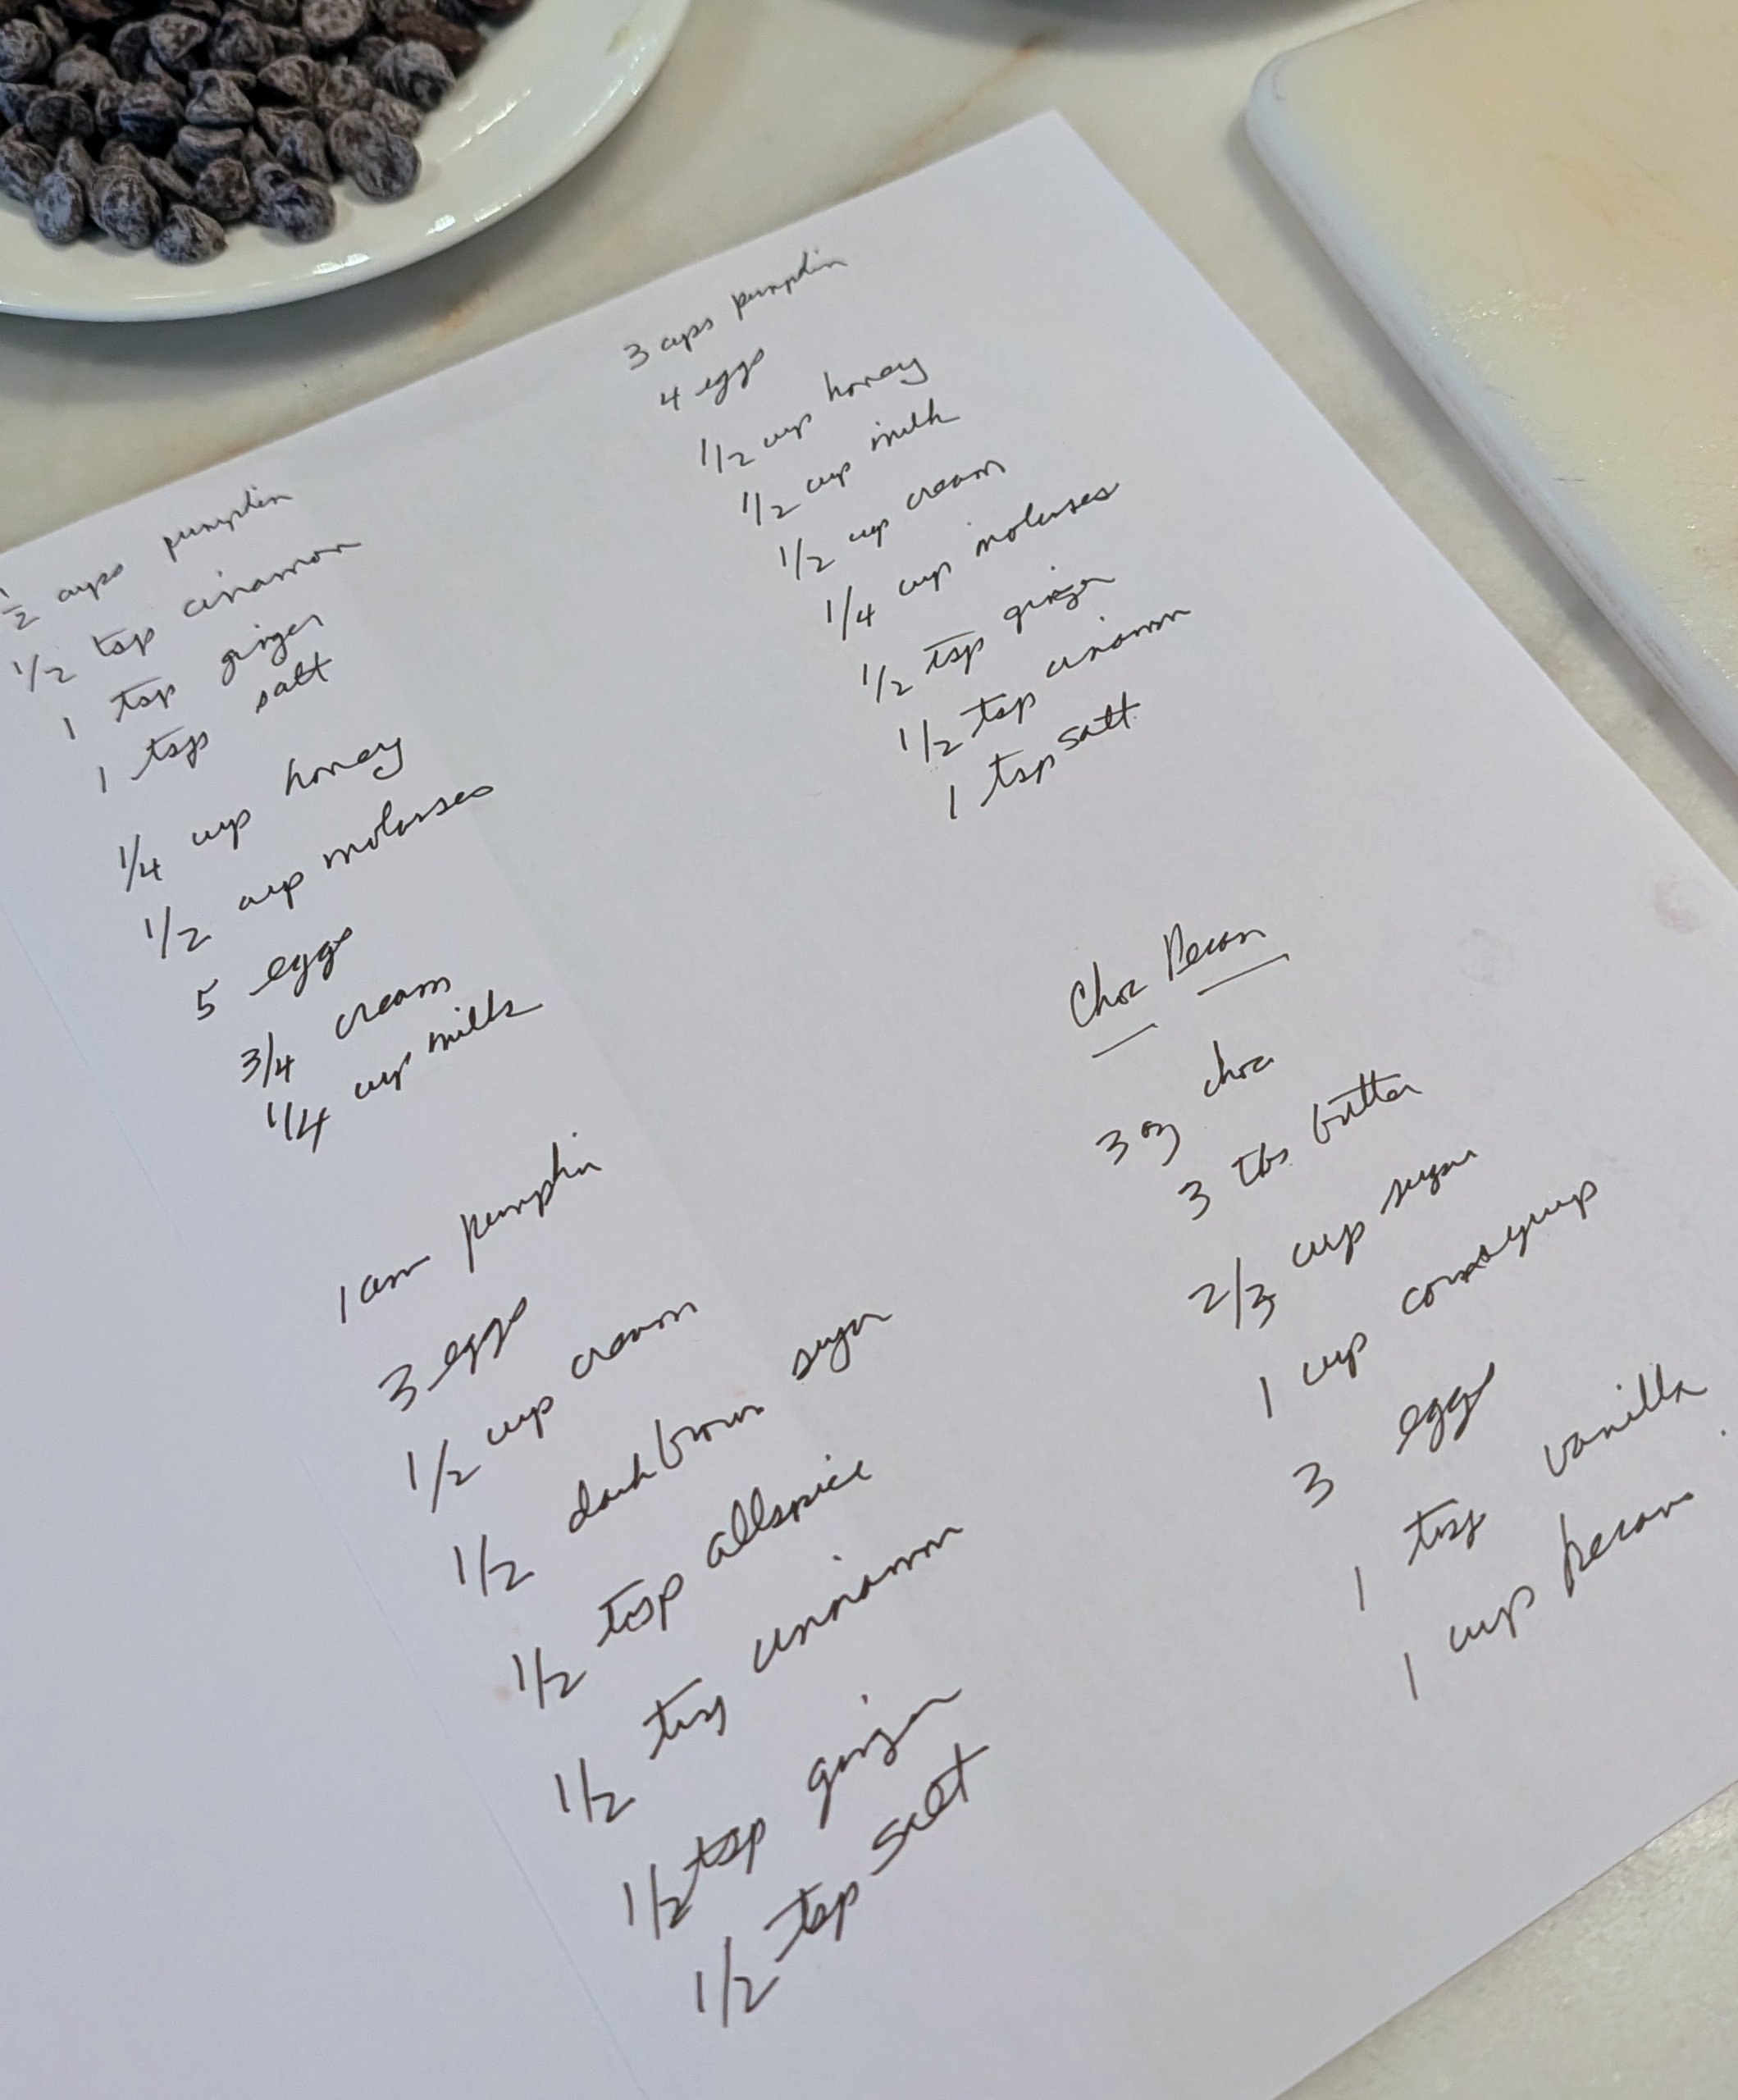 1/2 cups pumpkin
1/2 tsp cinamon
1 tsp ginger
1 tsp salt
1/4 cup honey
1/2 cup molasses
5 eggs
3/4 cream
1/4 cup milk
1 can pumpkin
3 eggs
1/2 cup cream
1/2 dark brown sugar
1/2 tsp allspice
1/2 tsp cinnamon
1/2 tsp ginger
1/2 tsp salt
3 cups pumpkin
4 eggs
1/2 cup honey
1/2 cup milk
1/2 cup cream
1/4 cup molasses
1/2 tsp ginger
1/2 tsp cinamon
1 tsp salt
Choc Pecan
3 oz choc
3 tbs. butter
2/3 cup sugar
1 cup cornsyrup
3 eggs
1 tsp vanilla
1 cup pecans